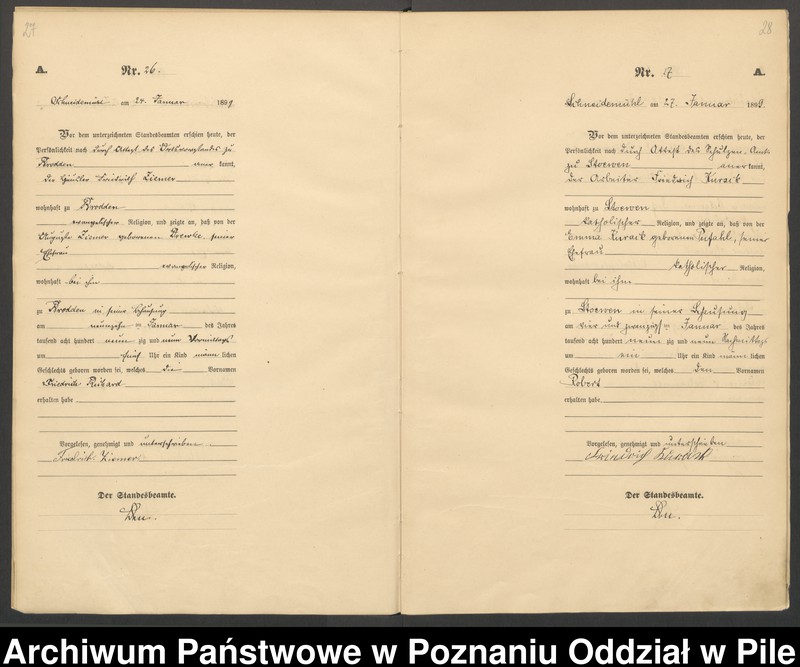 27
A.
Nr. 26.
Schneidemühl am 24. Januar 1899.
Vor dem unterzeichneten Standesbeamten erschien heute, der
Persönlichkeit nach durch Attest des Ortsvorstandes zu
Brodden anerkannt,
der Häusler Friedrich Ziemer
wohnhaft zu Brodden
evangelischer Religion, und zeigte an, daß von der
Auguste Ziemer geborenen seiner
Ehefrau
evangelischer Religion,
wohnhaft bei ihm
zu Brodden in seiner Behausung
am neunzehn ten Januar des Jahres
tausend acht hundert neun zig und neun Vormittags
um fünf Uhr ein Kind männlichen
Geschlechts geboren worden sei, welches die Vornamen
Friedrich Richard
erhalten habe
Vorgelesen, genehmigt und unterschrieben
Friedrich Ziemer
Der Standesbeamte.
28
Nr. 27
A.
Schneidemühl am 27. Januar 1899.
Vor dem unterzeichneten Standesbeamten erschien heute, der
Persönlichkeit nach durch Attest des Schulzen-Amts
zu Stoewen anerkannt,
der Arbeiter Friedrich Kursik
wohnhaft zu Stoewen
katholischer Religion, und zeigte an, daß von der
Emma Kursik geborenen Pufahl, seiner
Ehefrau
katholischer Religion,
wohnhaft bei ihm
zu Stoewen in seiner Behausung
am vier und zwanzigsten Januar des Jahres
tausend acht hundert neun zig und neun Nachmittags
um ein Uhr ein Kind männlichen
Geschlechts geboren worden sei, welches den Vornamen
Robert
erhalten habe
Vorgelesen, genehmigt und unterschrieben
Friedrich Kursik
Der Standesbeamte.
Archiwum Państwowe w Poznaniu Oddział w Pile